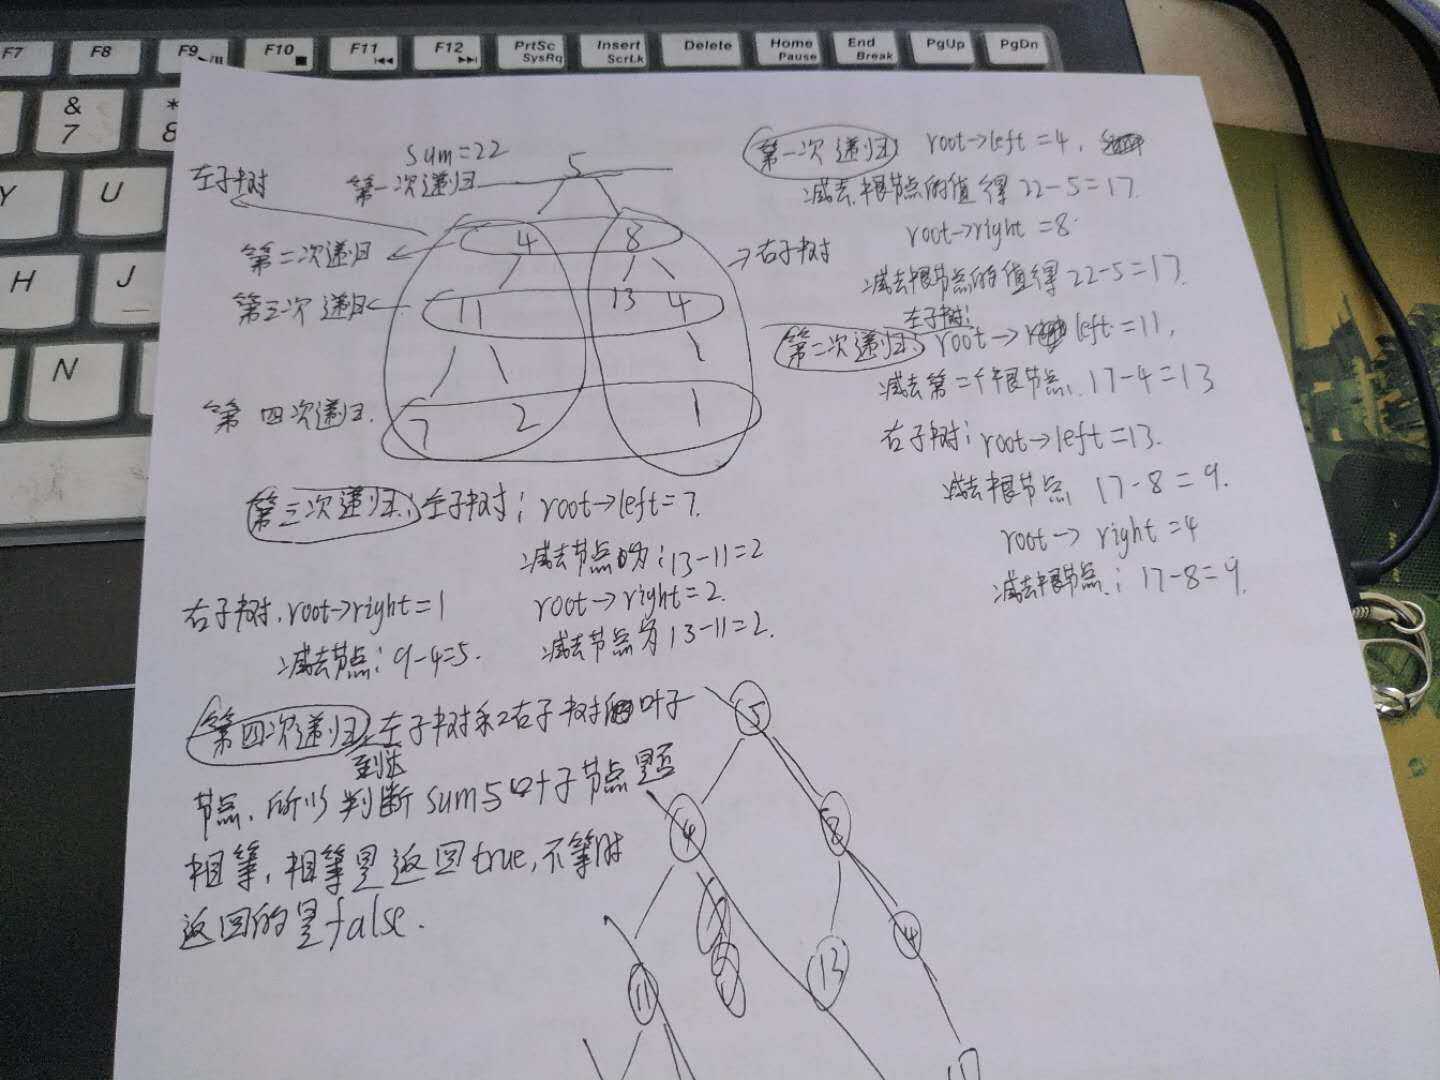 F7 F8 F9 F10 F11 F12 PrtSc SysRq Insert ScrLk Delete Home Pause End Break PgUp PgDn
&
7
*
8
Y U
H J
N
sum=22
左子树
第一次递归
5
第二次递归
4 8
右子树
第三次递归
11 13 4
第四次递归.
7 2 1
第一次递归 root→left=4,
减去根节点的值得 22-5=17.
root→right=8
减去根节点的值得 22-5=17.
左子树:
第二次递归: root→ left=11,
减去第二个根节点, 17-4=13
右子树: root→left=13.
减去根节点 17-8=9.
root→ right=4
减去根节点: 17-8=9.
第三次递归: 左子树: root→left=7.
减去节点为: 13-11=2
右子树, root→right=1
root→right=2.
减去节点: 9-4=5.
减去节点为13-11=2.
第四次递归 左子树和右子树的叶子
到达
节点, 所以判断sum与叶子节点是否
相等, 相等是返回true, 不等时
返回的是false.
5
4 8
13 4
11